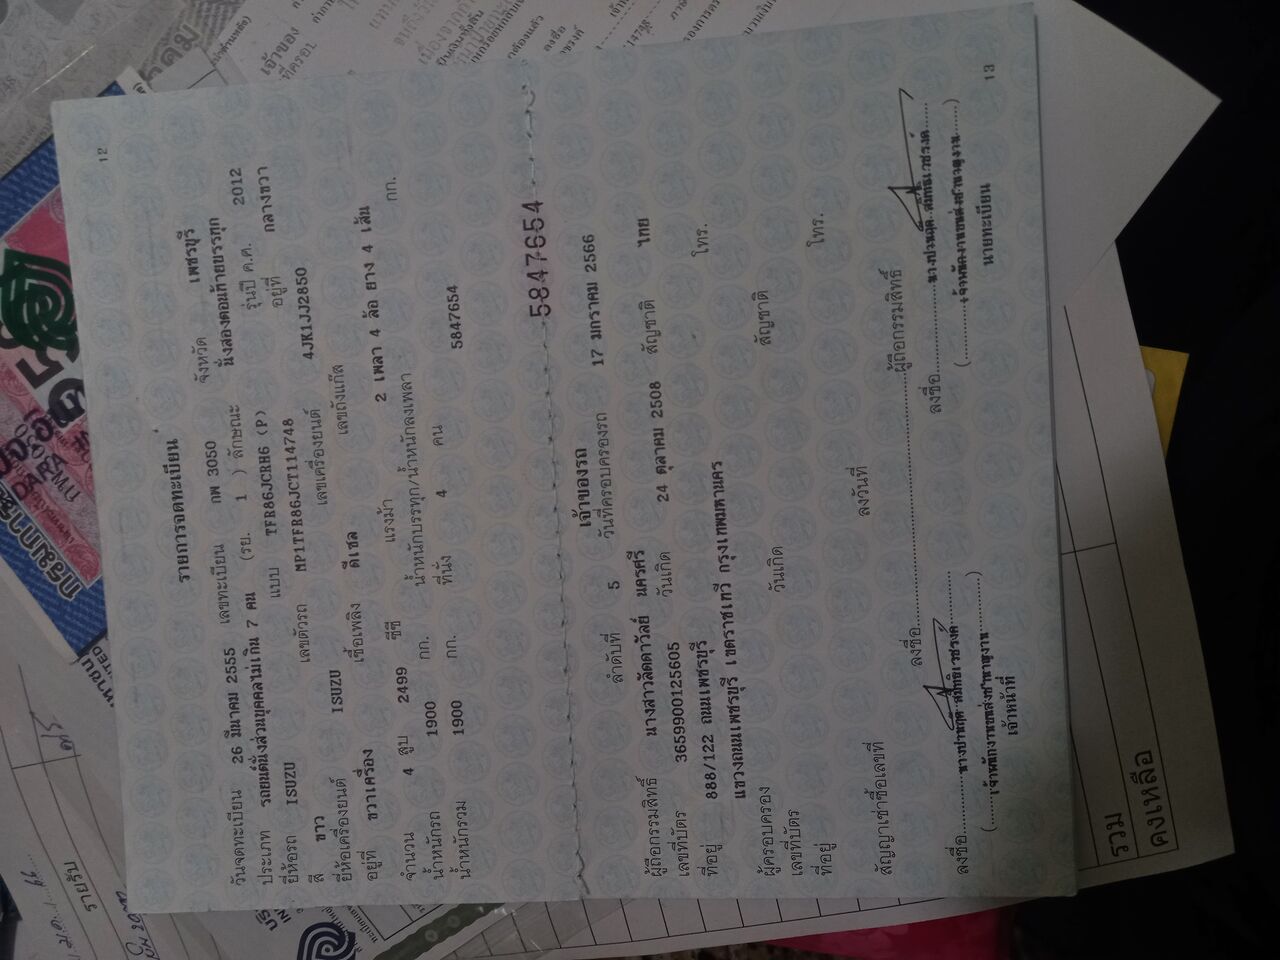 12
รายการจดทะเบียน
วันจดทะเบียน 26 มีนาคม 2555 เลขทะเบียน กพ 3050 จังหวัด เพชรบุรี
ประเภท รถยนต์นั่งส่วนบุคคลไม่เกิน 7 คน (รย. 1 ) ลักษณะ นั่งสองตอนท้ายบรรทุก
ยี่ห้อรถ ISUZU แบบ TFR86JCRH6 (P) รุ่นปี ค.ศ. 2012
สี ขาว เลขตัวรถ MP1TFR86JCT114748 อยู่ที่ กลางขวา
ยี่ห้อเครื่องยนต์ ISUZU เลขเครื่องยนต์ 4JK1JJ2850
อยู่ที่ ขวาเครื่อง เชื้อเพลิง ดีเซล เลขถังแก๊ส
จำนวน 4 สูบ 2499 ซีซี แรงม้า 2 เพลา 4 ล้อ ยาง 4 เส้น
น้ำหนักรถ 1900 กก. น้ำหนักบรรทุก/น้ำหนักลงเพลา กก.
น้ำหนักรวม 1900 กก. ที่นั่ง 4 คน 5847654
5847654
เจ้าของรถ
ลำดับที่ 5 วันที่ครอบครองรถ 17 มกราคม 2566
ผู้ถือกรรมสิทธิ์ นางสาวลัดดาวัลย์ นครศรี
เลขที่บัตร 3659900125605 วันเกิด 24 ตุลาคม 2508 สัญชาติ ไทย
ที่อยู่ 888/122 ถนนเพชรบุรี โทร.
แขวงถนนเพชรบุรี เขตราชเทวี กรุงเทพมหานคร
ผู้ครอบครอง
เลขที่บัตร วันเกิด สัญชาติ
ที่อยู่ โทร.
สัญญาเช่าซื้อเลขที่ ลงวันที่
ลงชื่อ ผู้ถือกรรมสิทธิ์
ลงชื่อ ลงชื่อ
เจ้าหน้าที่ นายทะเบียน
13
รวม
คงเหลือ
รายรับ